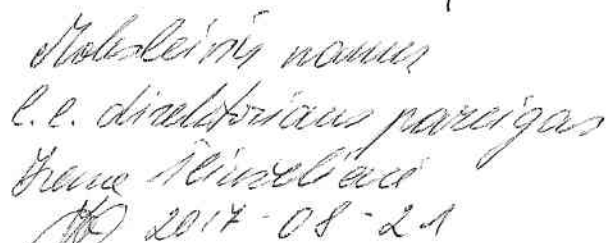 Moksleivių namų
l. e. direktoriaus pareigas
Irena
2017-08-21